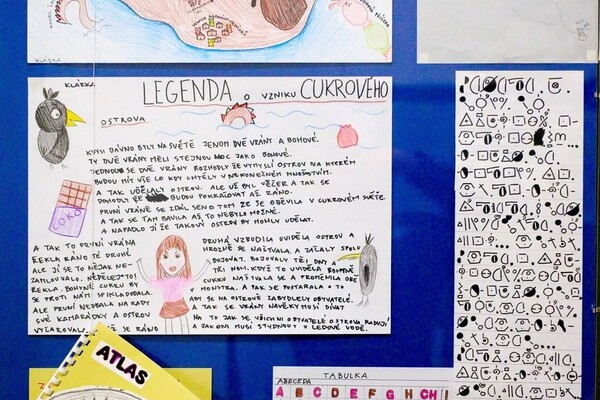 KLÁRKA
LEGENDA O VZNIKU CUKROVÉHO
OSTROVA
KDYSI DÁVNO BYLY NA SVĚTĚ JENOM DVĚ VRÁNY A BOHOVÉ.
TY DVĚ VRÁNY MĚLI STEJNOU MOC JAKO BOHOVÉ.
JEDNOU SE DVĚ VRÁNY ROZHODLY ŽE VYMYSLÍ OSTROV NA KTERÉM
BUDOU MÍT VŠE CO KDY CHTĚLY V NEKONEČNÉM MNOŽSTVÍM.
A TAK UDĚLALY OSTROV. ALE UŽ BYL VEČER A TAK SE
DOHODLY ŽE BUDOU POKRAČOVAT AŽ RÁNO.
PRVNÍ VRÁNĚ SE ZDÁL SEN O TOM ŽE SE OBJEVILA V CUKROVÉM SVĚTĚ
A TAK SE TAM BAVILA AŽ TO NEBYLO MOŽNÉ.
A NAPADLO JÍ ŽE TAKOVÝ OSTROV BY MOHLY UDĚLAT.
A TAK TO PRVNÍ VRÁNA
ŘEKLA RÁNO TÉ DRUHÉ
ALE JÍ SE TO NĚJAK NE-
ZAMLOUVALO. NEDĚLEJ TO!
ŘEKLA. BOHOVNĚ CUKRU BY
SE PROTI NÁTI
ALE PRVNÍ NEDBALA NA RADY
SVÉ KAMARÁDKY A OSTROV
VYČAROVALA. RÁNO
DRUHÁ VZBUDILA UVIDĚLA OSTROV A
HROZNĚ SE NAŠTVALA A ZAČALY SPOLU
BOJOVAT. BOJOVALY TŘI DNY A
TŘI NOCI. KDYŽ TO UVIDĚLA BOHYNĚ
CUKRU NAŠTVALA SE A PROMĚNILA OBĚ
V MONSTRA. A TAK SE POSTARALA O TO
ABY SE NA OSTROVĚ ZABYDLELY OBYVATELÉ.
A TAK SE VRÁNY NAVĚKY MUSÍ DÍVAT
NA TO JAK SE VŠICHNI OBYVATELÉ OSTROVA RADUJÍ
A JAK ONI MUSÍ STYDNOUT V LEDOVÉ VODĚ.
ČOKO
ATLAS
TABULKA
ABECEDA
A B C D E F G H CH I